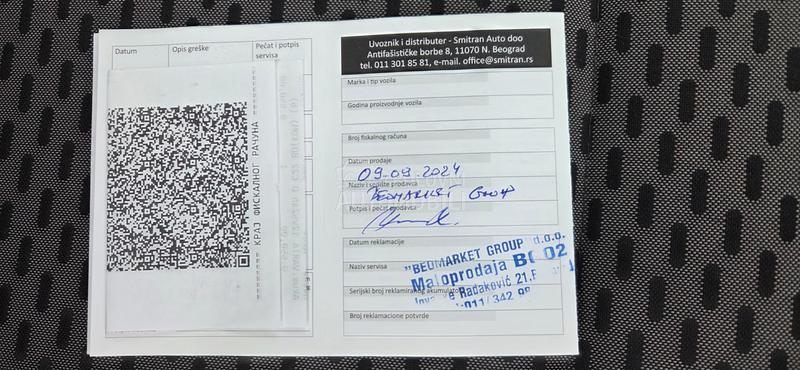 Datum
Opis greške
Pečat i potpis
servisa
КРАЈ ФИСКАЛНОГ РАЧУНА
Uvoznik i distributer - Smitran Auto doo
Antifašističke borbe 8, 11070 N. Beograd
tel. 011 301 85 81, e-mail. office@smitran.rs
Marka i tip vozila
Godina proizvodnje vozila
Broj fiskalnog računa
Datum prodaje
09-09-2024
Naziv i sedište prodavca
BEOMARKET Group
Potpis i pečat prodavca
Datum reklamacije
Naziv servisa
Serijski broj reklamiranog akumulatora
Broj reklamacione potvrde
"BEOMARKET GROUP d.o.o.
Maloprodaja 02
Radaković 21
011/ 342